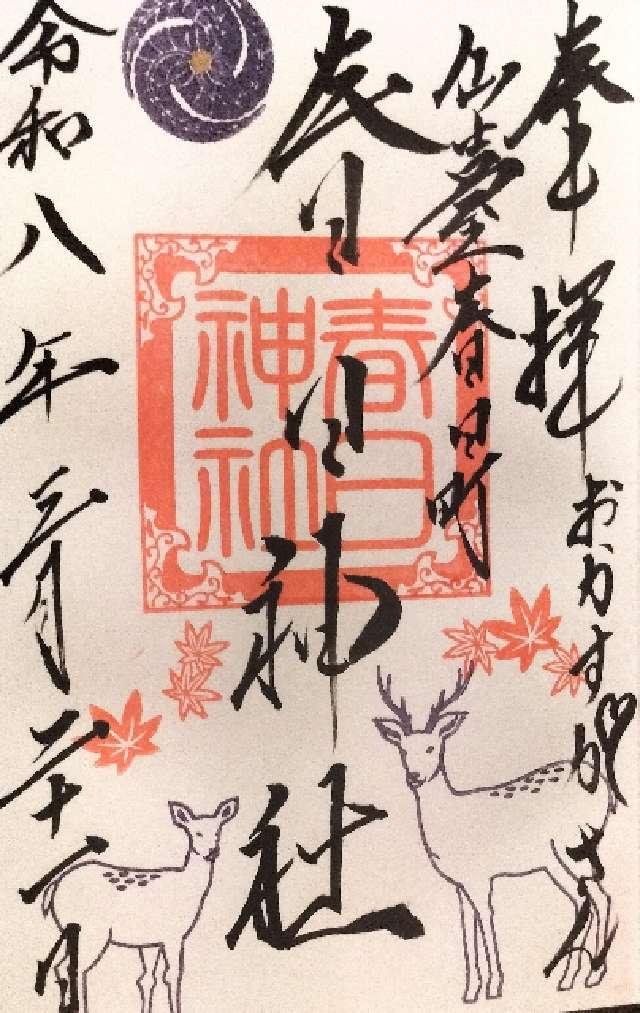 奉拝
おかすがさん
仙臺春日町
春日神社
春日
神社
令和八年三月二十二日